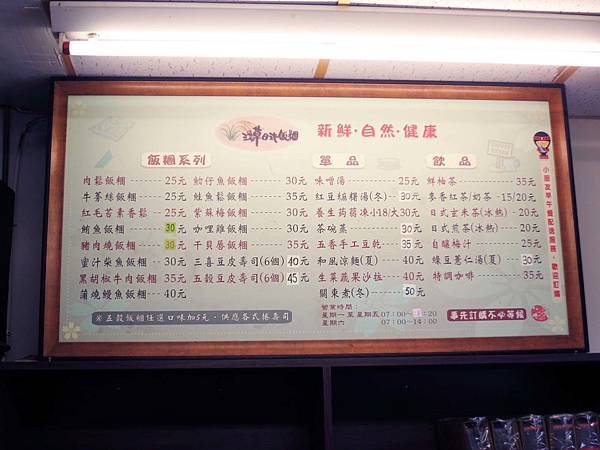 飯糰
新鮮·自然·健康
飯糰系列
肉鬆飯糰 25元
牛蒡絲飯糰 25元
紅毛苔素香鬆 25元
鮪魚飯糰 30元
豬肉燒飯糰 30元
蜜汁柴魚飯糰 30元
黑胡椒牛肉飯糰 35元
蒲燒鰻魚飯糰 40元
魩仔魚飯糰 30元
鮭魚鬆飯糰 35元
紫蘇梅飯糰 30元
咖哩雞飯糰 30元
干貝唇飯糰 35元
三喜豆皮壽司(6個) 40元
五穀豆皮壽司(6個) 45元
※五穀飯糰任選口味加5元，供應各式捲壽司
單品
味噌湯 25元
紅豆糯湯(冬) 30元
養生蒟蒻凍小18/大30元
茶碗蒸 30元
五香手工豆乾 35元
和風涼麵(夏) 40元
生菜蔬果沙拉 40元
關東煮(冬) 50元
營業時間：
星期一至星期五07:00～:20
星期六 07:00～14:00
飲品
鮮柚茶 35元
麥香紅茶/奶茶 15/20元
日式玄米茶(冰熱) 20元
日式煎茶(冰熱) 20元
自釀梅汁 25元
綠豆薏仁湯(夏) 30元
特調咖啡 35元
事先訂購不必等候
小朋友早午餐配送服務，歡迎訂購